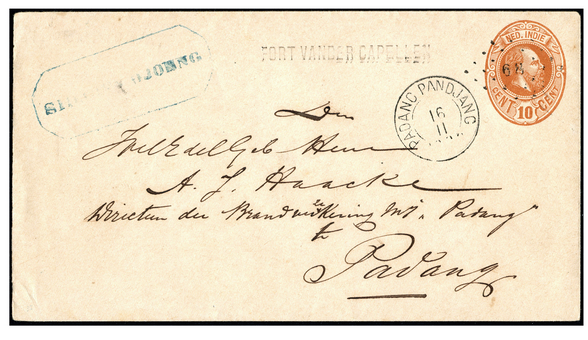 FORT VAN DER CAPELLEN
NED. INDIE
10 CENT
10
CENT
39
PADANG PANDJANG
16
11
Den
WelEdelGeb Heer
A. J. Haacke
Directeur der Brandverzekering Mij "Padang"
te
Padang